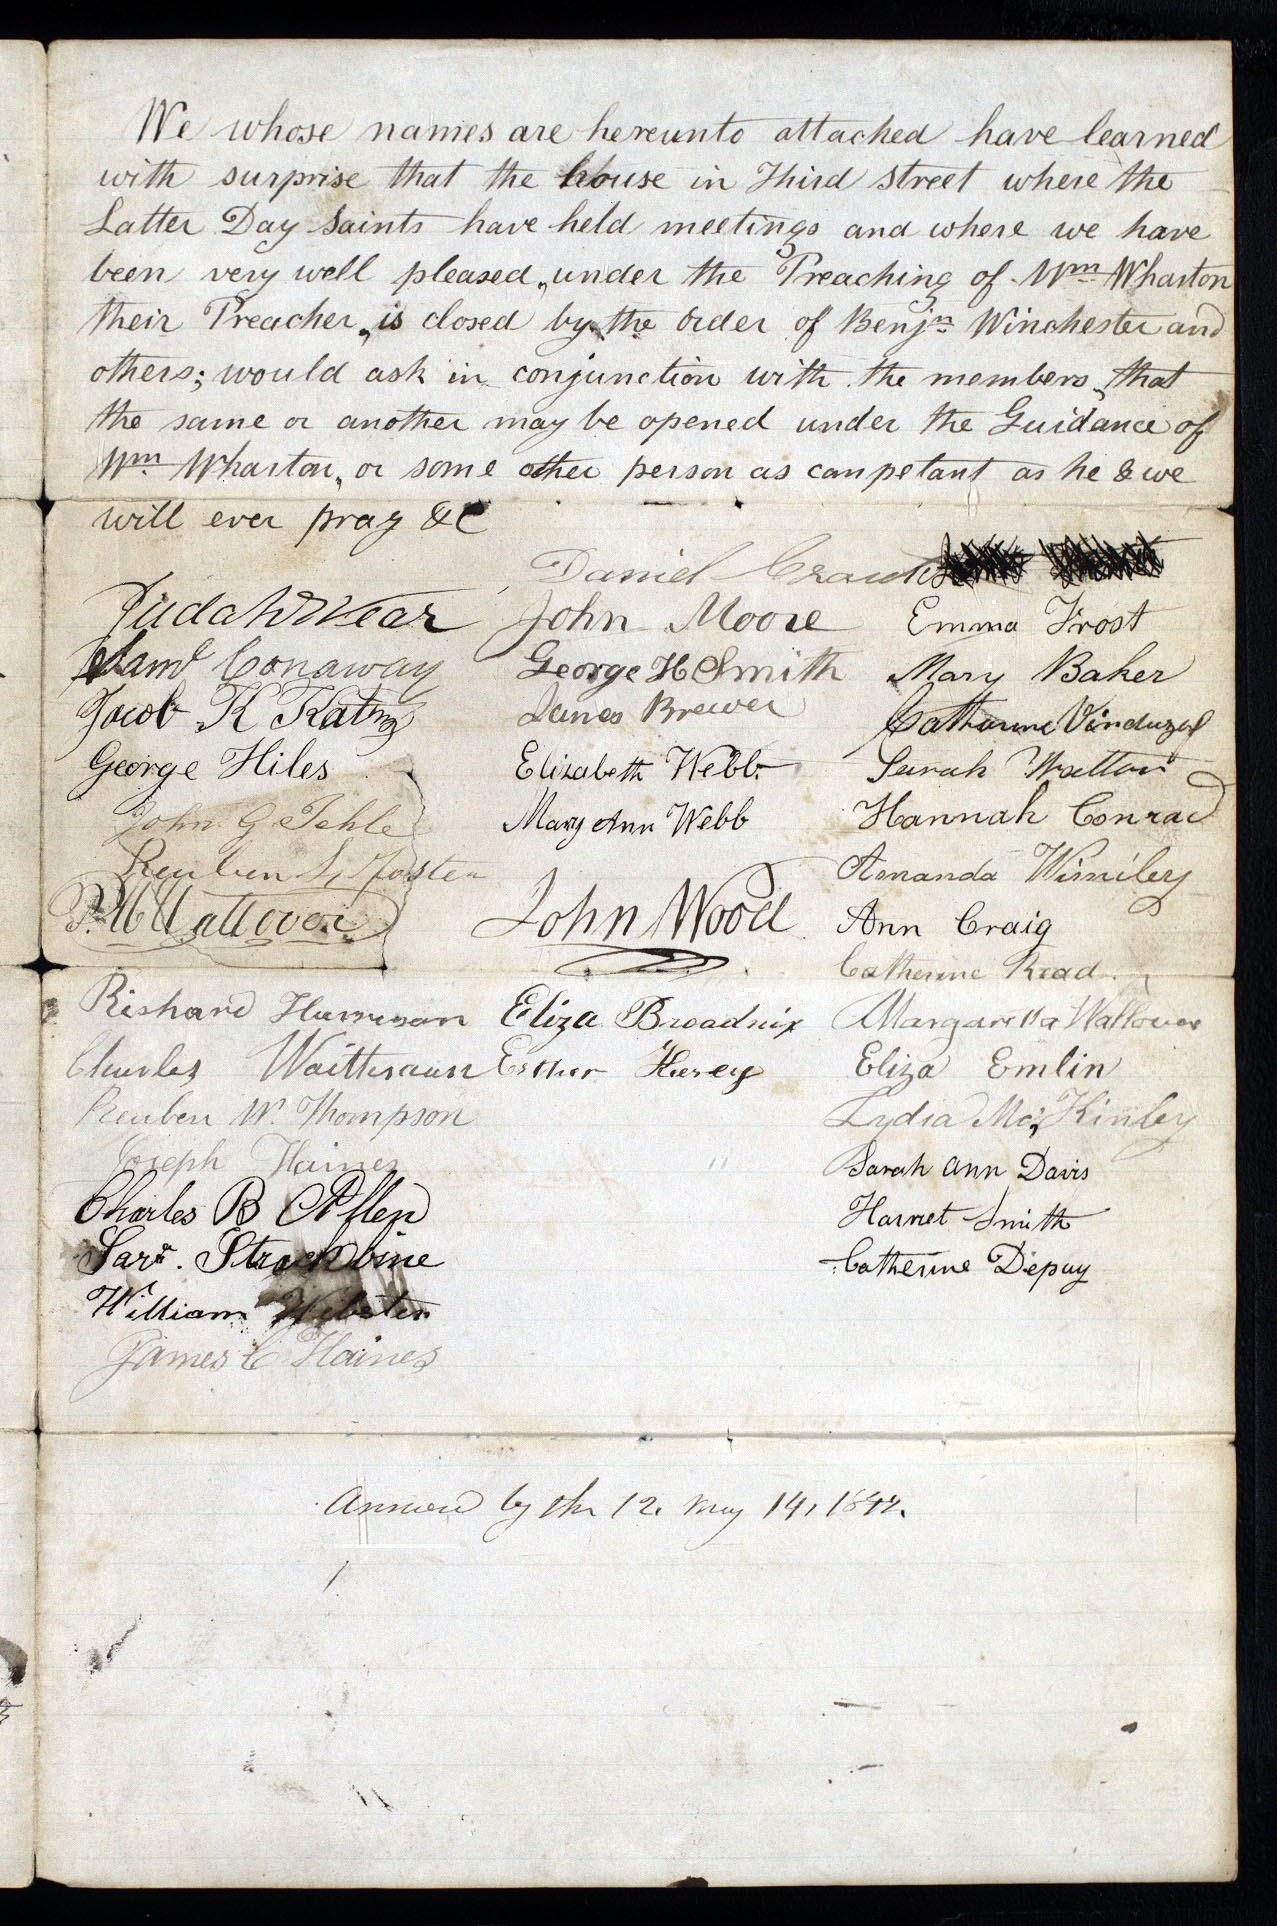 We whose names are hereunto attached have learned
with surprise that the house in Third street where the
Latter Day Saints have held meetings and where we have
been very well pleased, under the Preaching of Wm Wharton
their Preacher, is closed by the order of Benjn Winchester and
others; would ask in conjunction with the members, that
the same or another may be opened under the Guidance of
Wm Wharton, or some other person as competant as he & we
will ever pray &C
Judah Wear
Saml Conaway
Jacob K Katmz
George Hiles
John G Tehle
Reuben L, Foster
P. W Wallover
Richard Harrison
Charles
Reuben W. Thompson
Joseph Haines
Charles B Afflen
Sart. Strackbine
William Webster
James C Haines
Daniel
John Moore
George H Smith
James Brewer
Elizabeth Webb
Mary Ann Webb
John Wood
Eliza Broadnix
Esther
Emma Frost
Mary Baker
Catharine
Sarah Walton
Hannah Conrad
Amanda Wimiley
Ann Craig
Catherine Read
Margaretta Wallover
Eliza Emlin
Lydia Mc, Kinley
Sarah Ann Davis
Harriet Smith
Catherine Depuy
Answered by the 12. May 14, 1842.